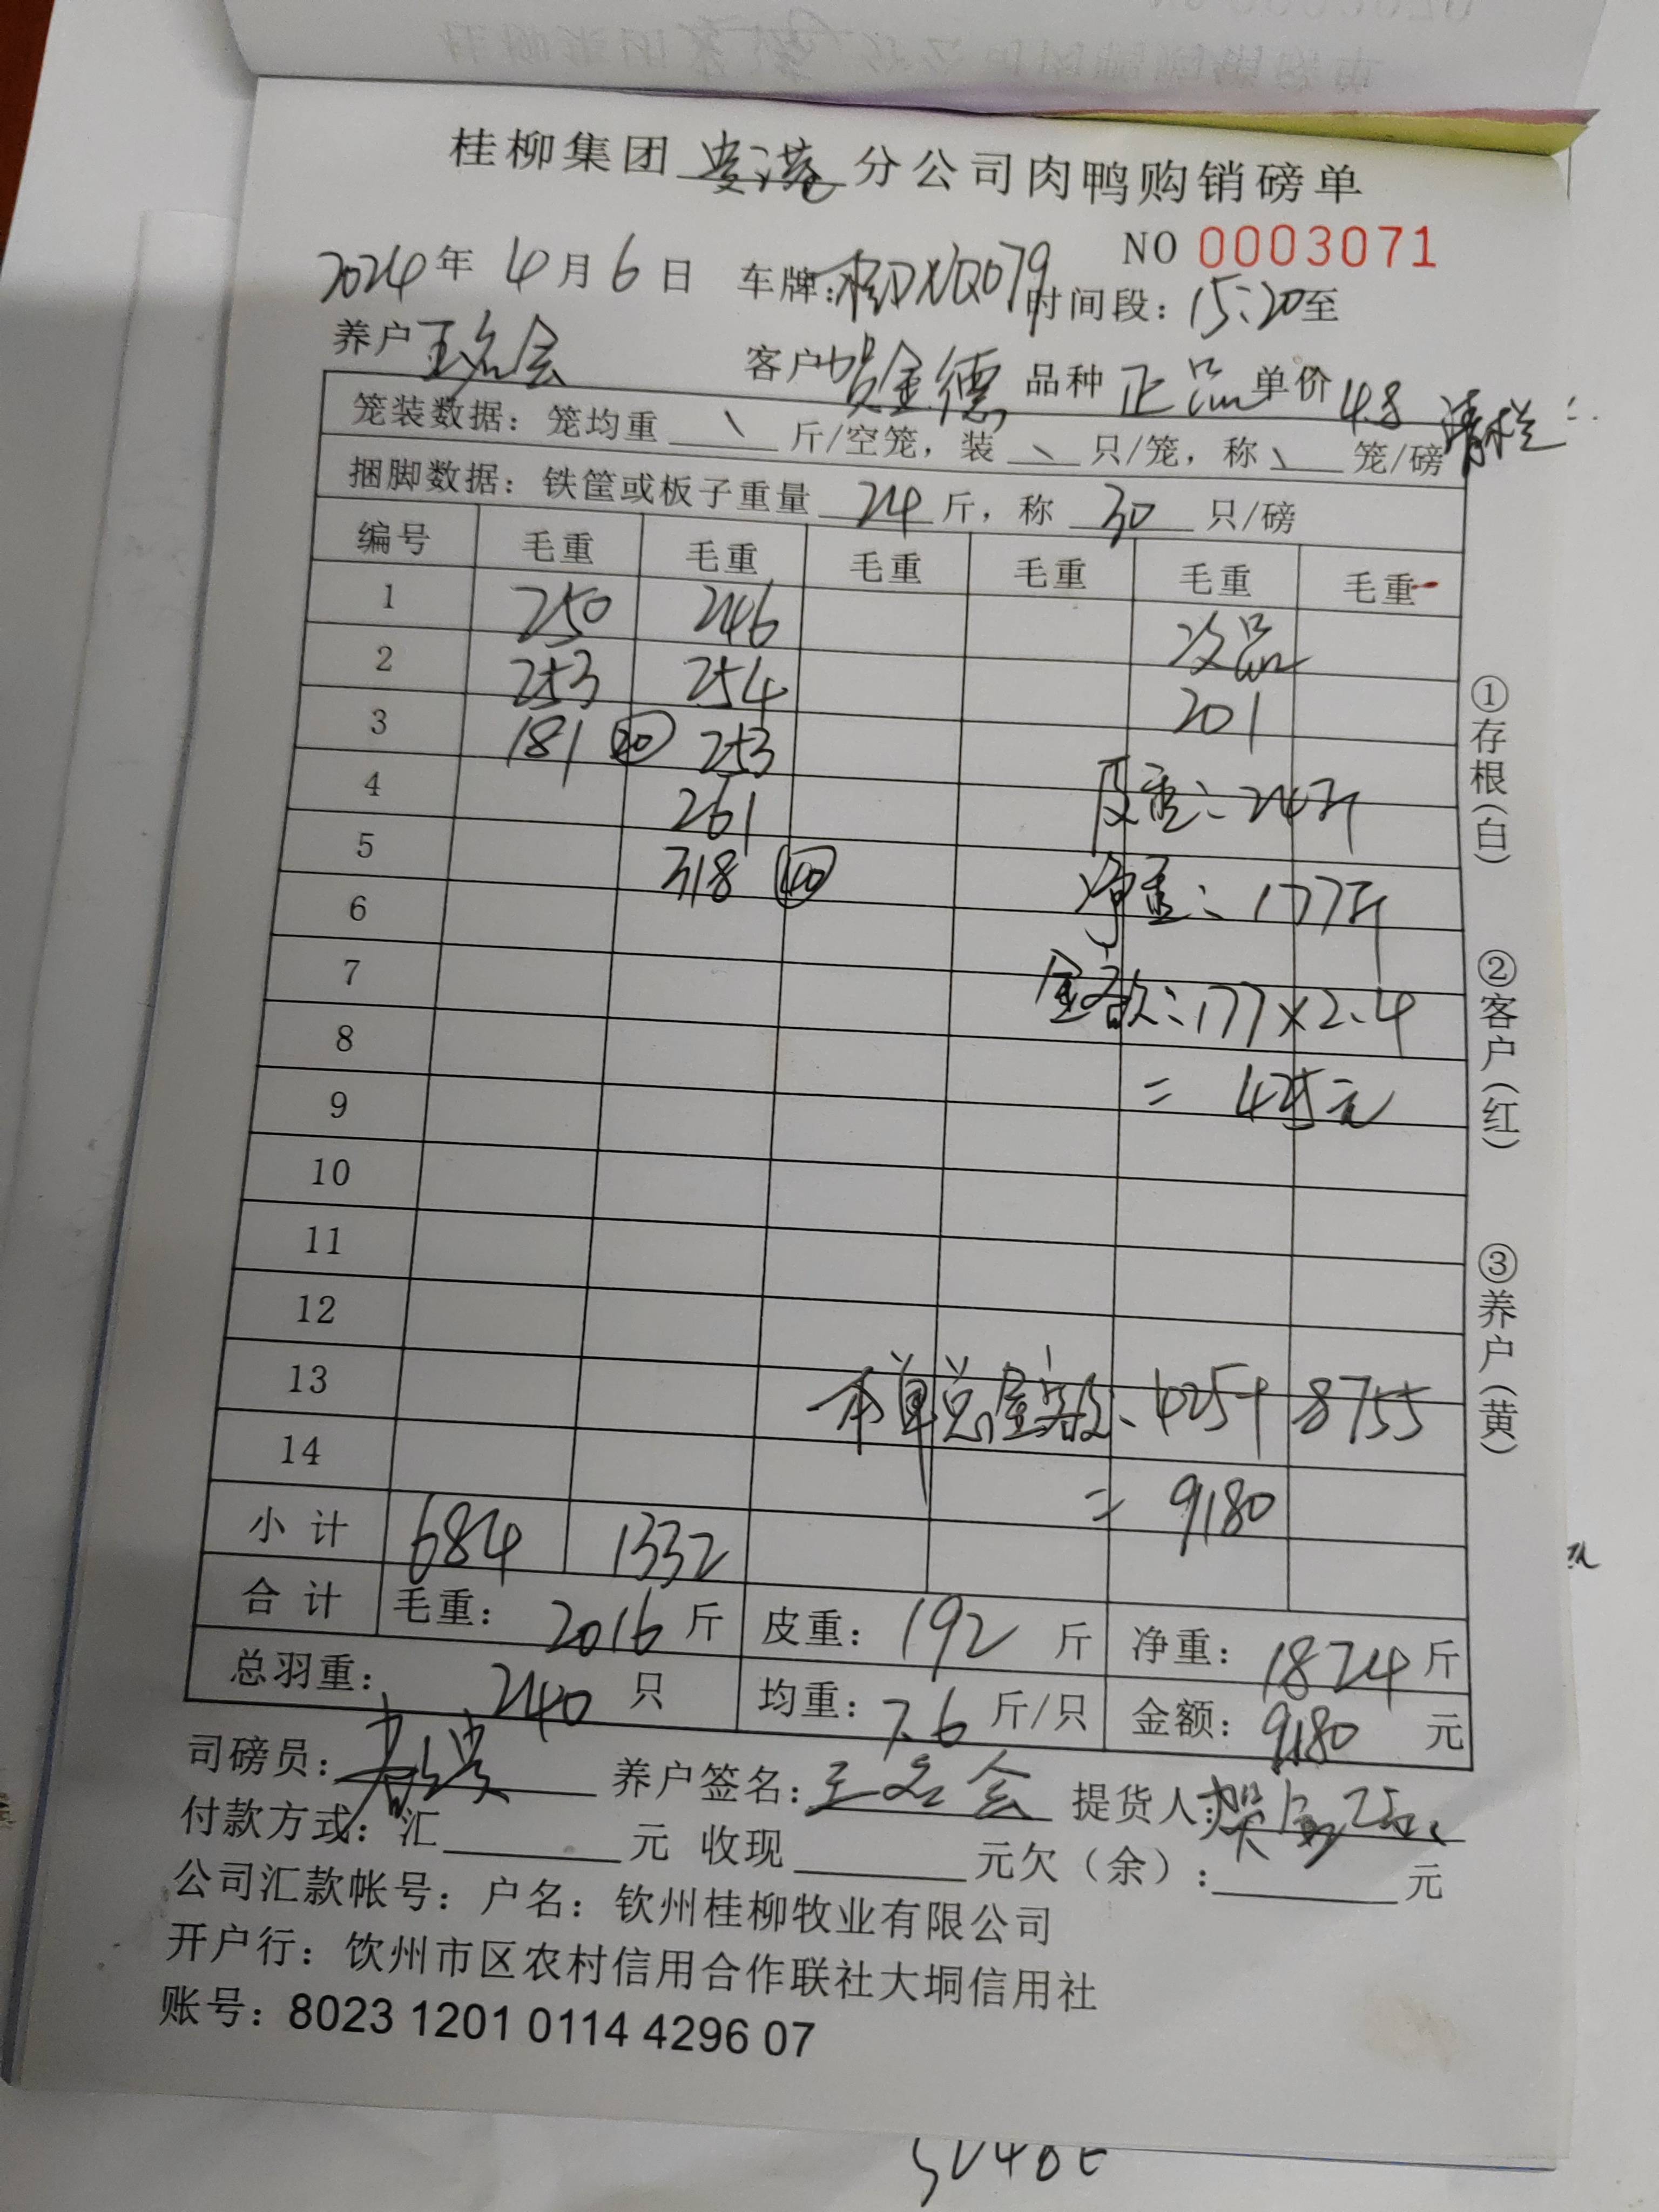 桂柳集团 贵港 分公司肉鸭购销磅单
NO 0003071
2024年 4月 6日 车牌:桂DNQ079 时间段:15:20至
养户 王名会 客户 贺金德 品种 正品 单价 4.8 清栏
笼装数据:笼均重 \ 斤/空笼,装 \ 只/笼,称 \ 笼/磅
捆脚数据:铁筐或板子重量 24 斤,称 30 只/磅
编号 毛重 毛重 毛重 毛重 毛重 毛重
1 250 246 次品
2 253 254 201
3 181 20 253
4 261 皮重:24斤
5 318 40
6 净重:177斤
7 金额:177×2.4
8 = 425元
9
10
11
12
13 本单总金额:425+8755
14 = 9180
小计 684 1332
合计 毛重: 2016 斤 皮重: 192 斤 净重: 1824 斤
总羽重: 240 只 均重: 7.6 斤/只 金额: 9180 元
司磅员: 养户签名:王名会 提货人:
付款方式:汇 元 收现 元欠(余): 元
公司汇款帐号:户名:钦州桂柳牧业有限公司
开户行:饮州市区农村信用合作联社大垌信用社
账号:8023 1201 0114 4296 07
①存根(白) ②客户(红) ③养户(黄)